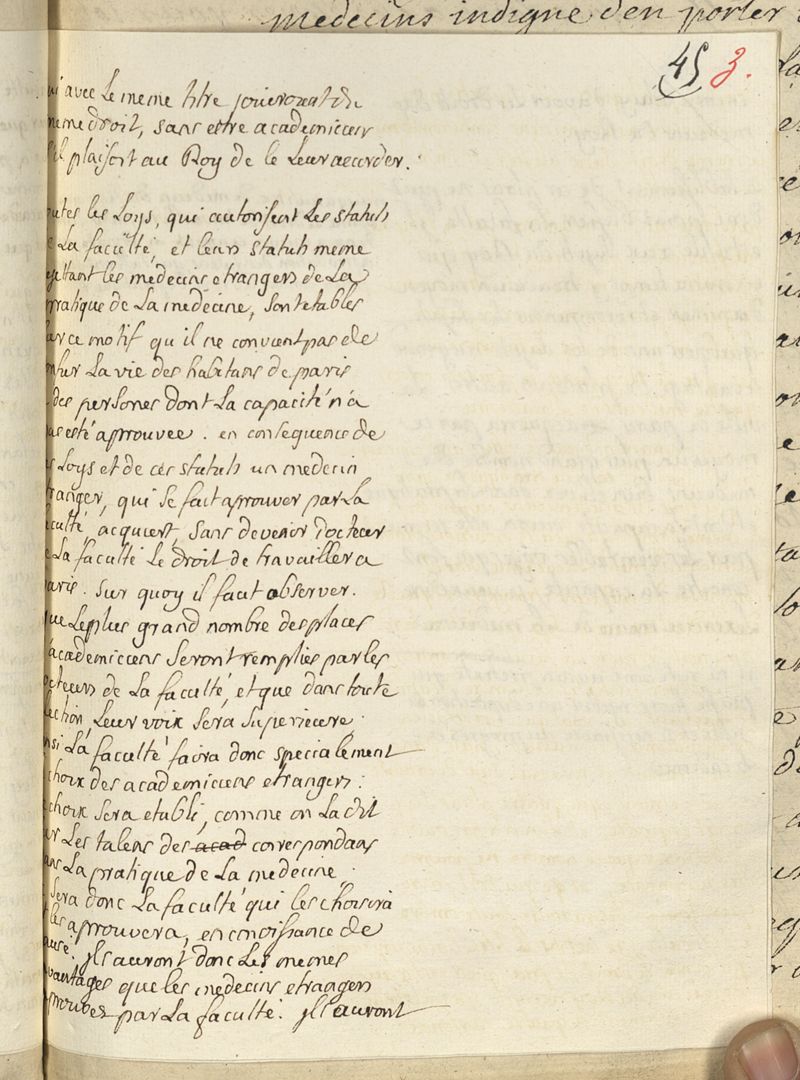 medecins indigne d'en porter
45 3.
avec le meme titre joüeroient du
meme droit, sans estre academiciens
s'il plaisoit au Roy de le leur accorder.
toutes les Loys, qui autorisent les statuts
de La faculté, et leurs statuts meme
les medecins etrangers de La
pratique de La medecine, sont etablis
par ce motif qu'il ne convient pas de
La vie des habitans de paris
des persones dont La capacité n'a
pas esté aprouvée. en consequence de
Loys et de ces statuts un medecin
etranger, qui se fait aprouver par La
faculté, acquiert, sans devenir docteur
de La faculté le droit de travailler a
paris. sur quoy il faut observer.
que le plus grand nombre des places
d'academiciens seront remplies par les
docteurs de La faculté, et que dans toute
election, leur voix sera superieure.
ainsi La faculté faira donc specialement
choix des academiciens etrangers.
choix sera etabli, comme on L'a dit
sur Les talens des acad correspondans
dans La pratique de La medecine.
sera donc La faculté qui les choisira
les aprouvera, en conoissance de
cause. jls auront donc Les memes
avantages que les medecins etrangers
aprouvez par La faculté. jls auront